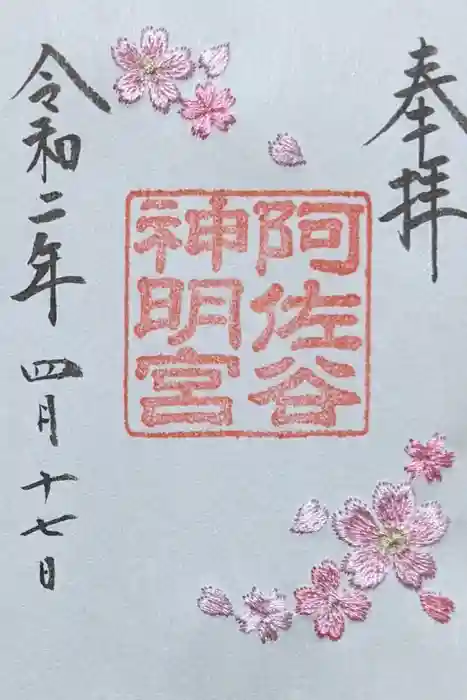 奉拝
阿佐谷
神明宮
令和二年 四月十七日